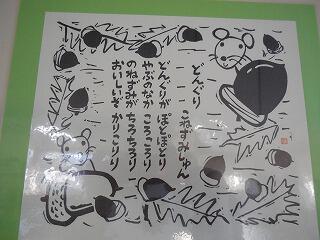 どんぐり
こねずみしゅん
どんぐりが ぽとぽとり
やぶのなか ころころり
のねずみが ちろちろり
おいしいぞ かりこりり